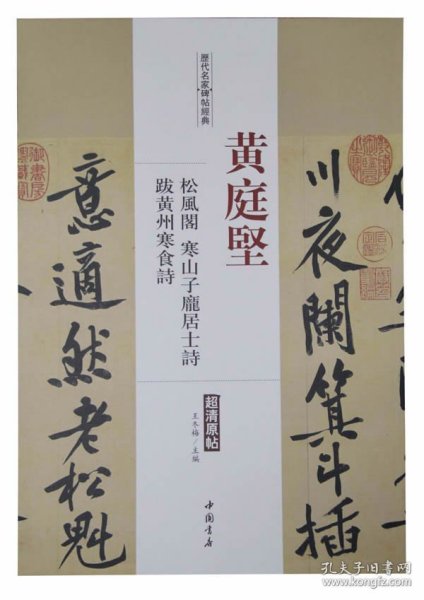 川夜闌箕斗插
歷代名家碑帖經典
黄庭堅
松風閣 寒山子龐居士詩
跋黄州寒食詩
超清原帖
王冬梅/主編
中国書店
意適然老松魁
御書房
孔夫子旧书网
www.kongfz.com